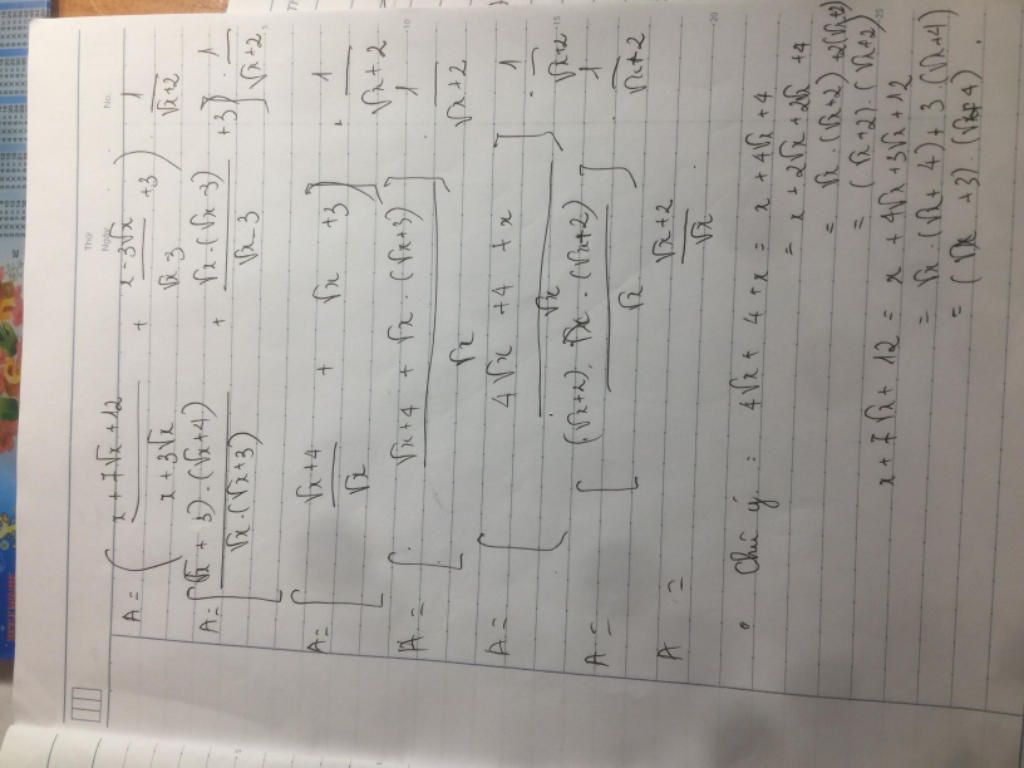 Thứ
Ngày
No.
A = ( (x + 7√x + 12)/(x + 3√x) + (x - 3√x)/(√x - 3) + 3 ) · 1/(√x + 2)
A = [ (√x + 3) · (√x + 4)/(√x · (√x + 3)) + √x · (√x - 3)/(√x - 3) + 3 ] · 1/(√x + 2)
A = [ (√x + 4)/√x + √x + 3 ] · 1/(√x + 2)
A = [ (√x + 4 + √x · (√x + 3))/√x ] · 1/(√x + 2)
A = [ (4√x + 4 + x)/√x ] · 1/(√x + 2)
A = [ (√x + 2) · (√x + 2)/√x ] 1/(√x + 2)
A = (√x + 2)/√x
• Chú ý : 4√x + 4 + x = x + 4√x + 4
= x + 2√x + 2√x + 4
= √x · (√x + 2) + 2(√x + 2)
= (√x + 2) · (√x + 2)
x + 7√x + 12 = x + 4√x + 3√x + 12
= √x · (√x + 4) + 3 (√x + 4)
= (√x + 3) · (√x + 4)
5
10
15
20
25